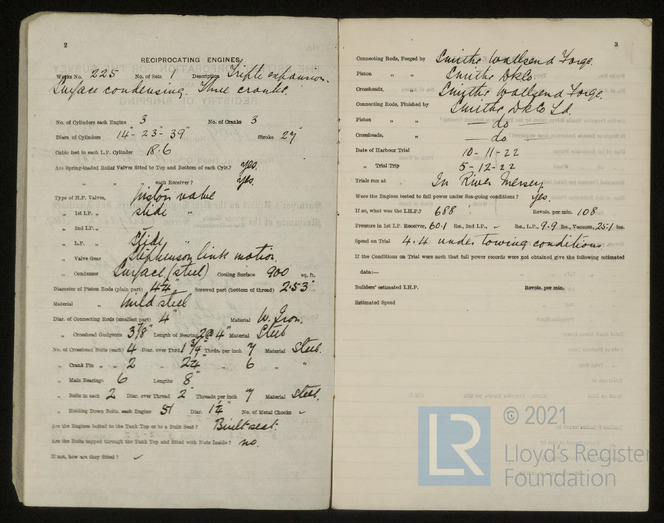 2
RECIPROCATING ENGINES.
Works No. 225 No. of Sets 1 Description Triple expansion.
Surface condensing. Three cranks.
No. of Cylinders each Engine 3 No. of Cranks 3
Diars. of Cylinders 14 - 23 - 39" Stroke 27"
Cubic feet in each L.P. Cylinder 18.6
Are Spring-loaded Relief Valves fitted to Top and Bottom of each Cylr.? yes.
" " each Receiver? yes.
Type of H.P. Valves, piston valve
" 1st I.P. " slide "
" 2nd I.P. "
" L.P. " slide "
" Valve Gear Stephenson link motion.
" Condenser Surface (steel) Cooling Surface 900 sq. ft.
Diameter of Piston Rods (plain part) Screwed part (bottom of thread) 2.53"
Material " mild steel
Diar. of Connecting Rods (smallest part) 4" Material W. Iron.
" Crosshead Gudgeons 3 7/8" Length of Bearing Material Steel
No. of Crosshead Bolts (each) 4 Diar. over Thrd. 1 3/4" Thrds. per inch 7 Material Steel.
" Crank Pin " 2 " 6 "
" Main Bearings 6 Lengths 8"
" Bolts in each 2 Diar. over Thread 2" Threads per inch 7 Material Steel.
" Holding Down Bolts, each Engine 51 Diar. No. of Metal Chocks -
Are the Engines bolted to the Tank Top or to a Built Seat? Built seat.
Are the Bolts tapped through the Tank Top and fitted with Nuts Inside? no.
If not, how are they fitted? ✓
3
Connecting Rods, Forged by Smiths Wallsend Forge.
Piston " " Smiths Dk Co.
Crossheads, " Smiths Wallsend Forge.
Connecting Rods, Finished by Smiths Dk Co Ld.
Piston " " — do —
Crossheads, " — do —
Date of Harbour Trial 10-11-22
" Trial Trip 5-12-22
Trials run at In River Mersey
Were the Engines tested to full power under Sea-going conditions? yes.
If so, what was the I.H.P.? 688 Revols. per min. 108
Pressure in 1st I.P. Receiver, 60.1 lbs., 2nd I.P., - lbs., L.P., 9.9 lbs., Vacuum, 25.1 ins.
Speed on Trial 4.4 under towing conditions
If the Conditions on Trial were such that full power records were not obtained give the following estimated
data:—
Builders' estimated I.H.P. Revols. per min.
Estimated Speed
LR © 2021
Lloyd's Register
Foundation